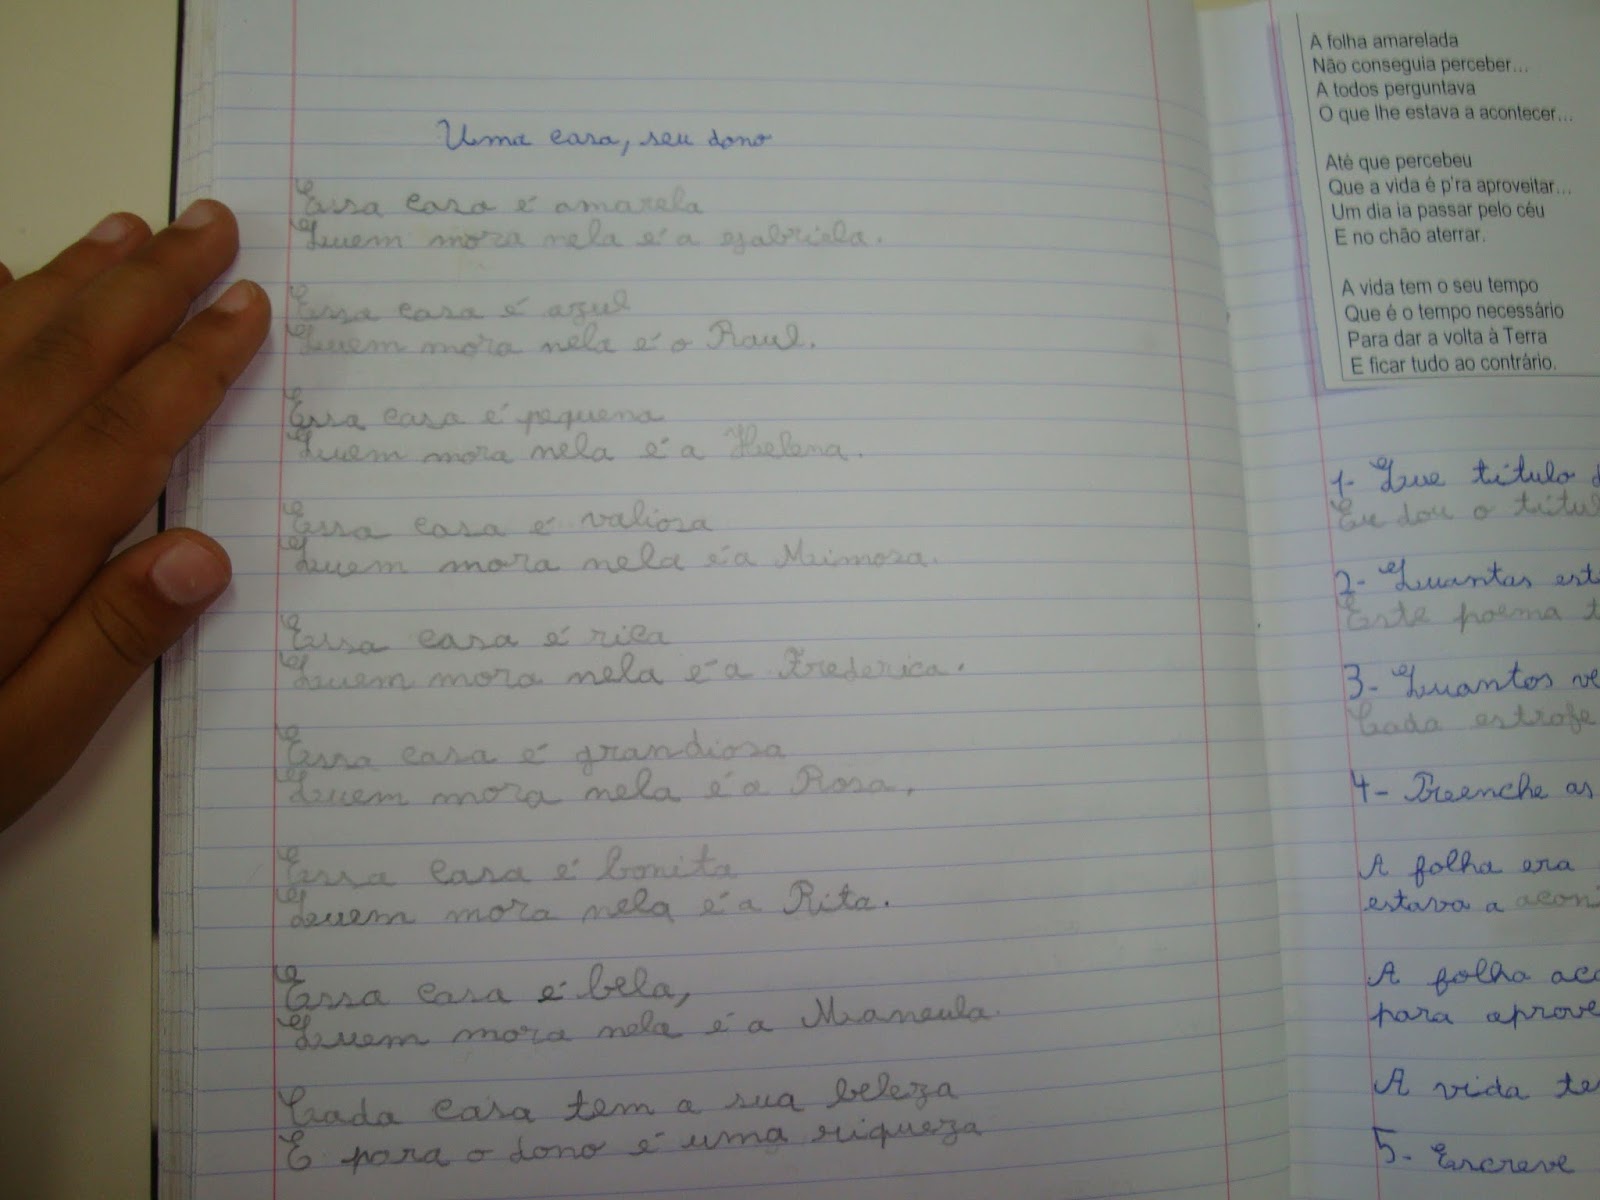 Uma casa, seu dono
Essa casa é amarela
Quem mora nela é a gabriela.
Essa casa é azul
Quem mora nela é o Raul.
Essa casa é pequena
Quem mora nela é a Helena.
Essa casa é valiosa
Quem mora nela é a Mimosa.
Essa casa é rica
Quem mora nela é a Frederica.
Essa casa é grandiosa
Quem mora nela é a Rosa.
Essa casa é bonita
Quem mora nela é a Rita.
Essa casa é bela,
Quem mora nela é a
Cada casa tem a sua beleza
E para o dono é uma riqueza
A folha amarelada
Não conseguia perceber...
A todos perguntava
O que lhe estava a acontecer...
Até que percebeu
Que a vida é p'ra aproveitar...
Um dia ia passar pelo céu
E no chão aterrar.
A vida tem o seu tempo
Que é o tempo necessário
Para dar a volta à Terra
E ficar tudo ao contrário.
1- Que título
Eu dou o títul
2- Quantas est
Este poema t
3- Quantos ve
Cada estrofe
4- Preenche as
A folha era
estava a acon
A folha aco
para aprove
A vida te
5- Escreve